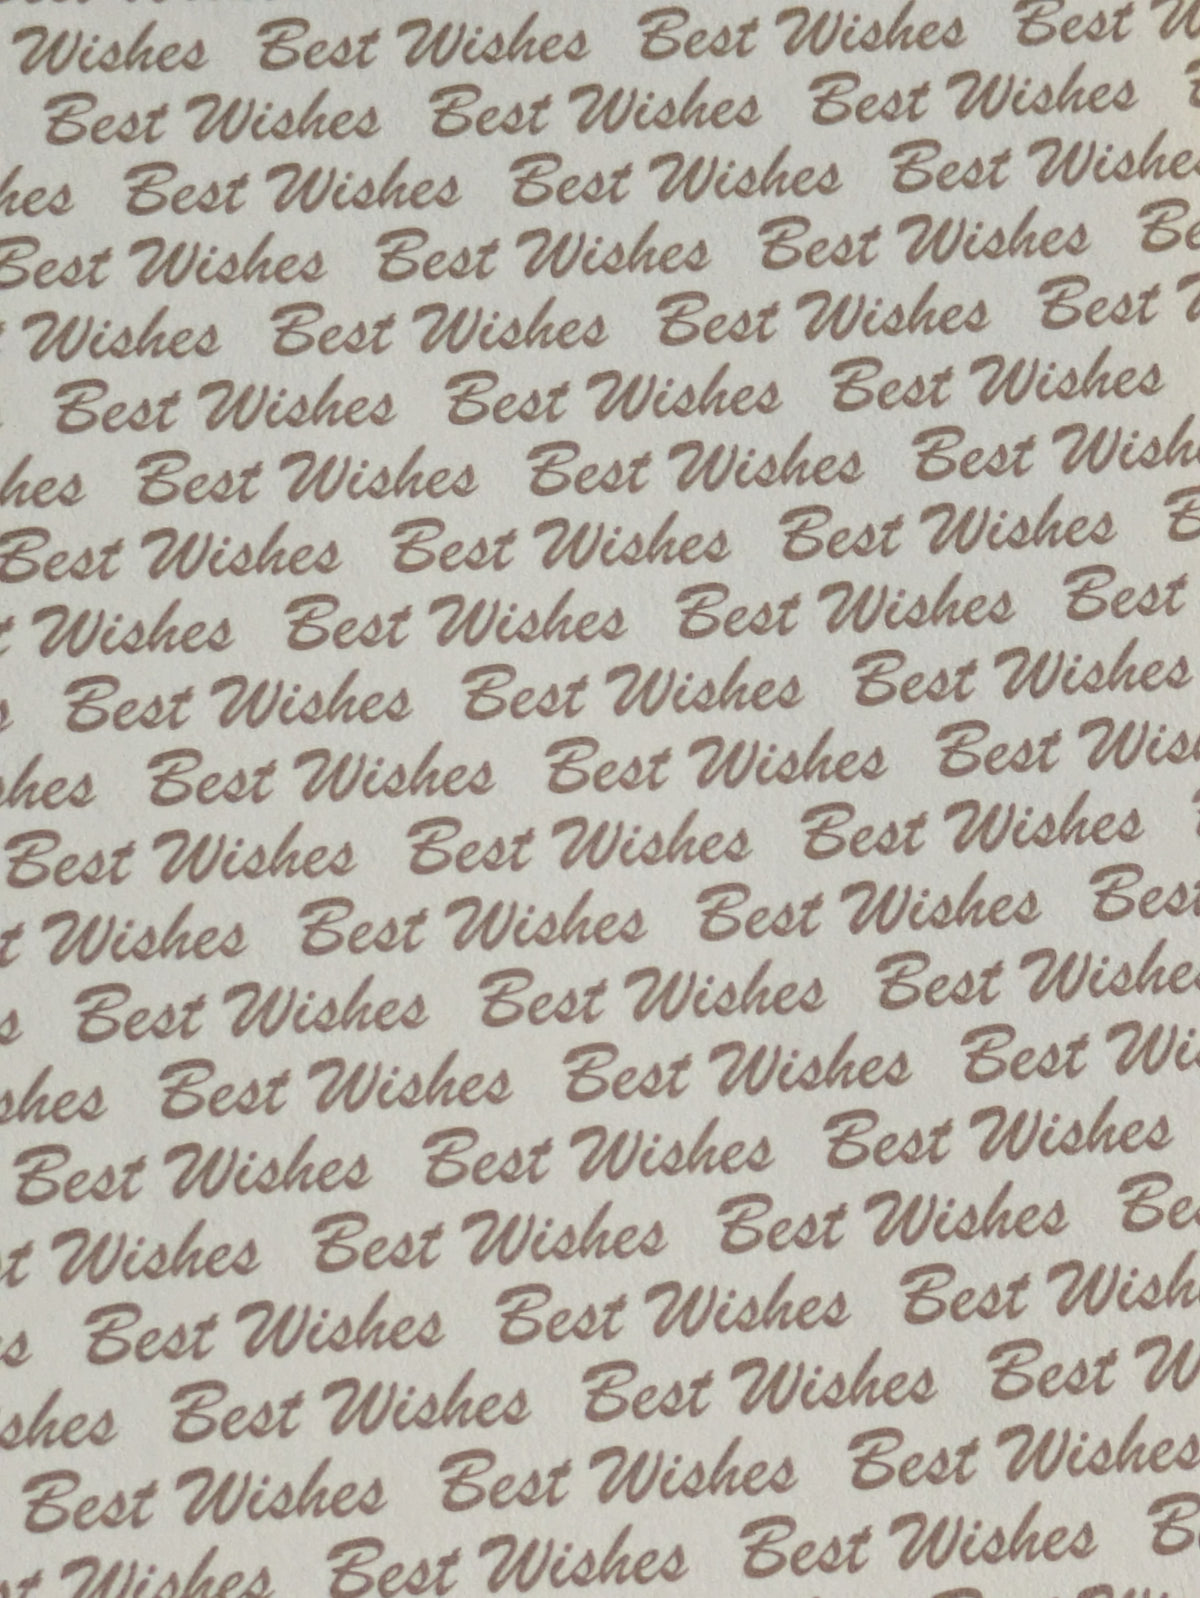 Wishes Best Wishes Best Wishes Best
Best Wishes Best Wishes Best Wishes
hes Best Wishes Best Wishes Best Wishes
Best Wishes Best Wishes Best Wishes Be
Wishes Best Wishes Best Wishes Best
Best Wishes Best Wishes Best Wishes
hes Best Wishes Best Wishes Best Wish
Best Wishes Best Wishes Best Wishes
t Wishes Best Wishes Best Wishes Best
s Best Wishes Best Wishes Best Wishes
shes Best Wishes Best Wishes Best Wis
Best Wishes Best Wishes Best Wishes
t Wishes Best Wishes Best Wishes Best
s Best Wishes Best Wishes Best Wishes
shes Best Wishes Best Wishes Best Wi
Best Wishes Best Wishes Best Wishes
st Wishes Best Wishes Best Wishes Be
es Best Wishes Best Wishes Best Wish
shes Best Wishes Best Wishes Best W
Best Wishes Best Wishes Best Wishes
st Wishes Best Wishes Best Wishes B